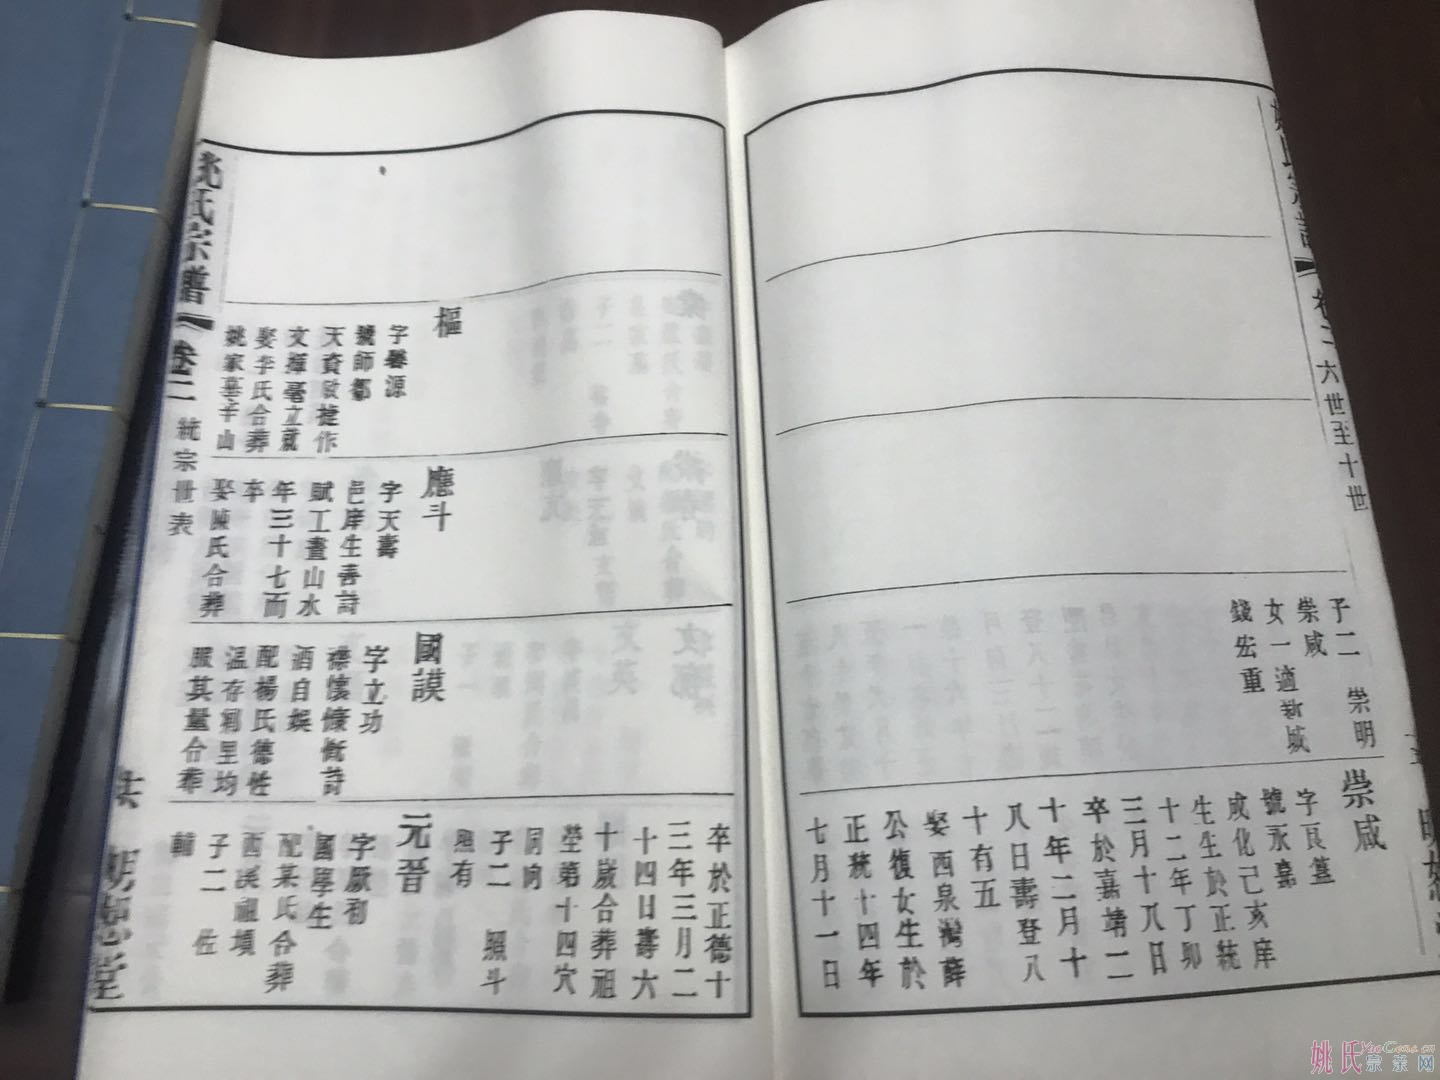 卷二 六世至十世
子二 崇明
崇咸
女一適新城
錢宏重
崇咸
字良簋
號永嘉
成化己亥庠
生生於正統
十二年丁卯
三月十八日
卒於嘉靖二
十年二月十
八日壽登八
十有五
娶西泉灣薛
公復女生於
正統十四年
七月十一日
卒於正德十
三年三月二
十四日壽六
十歲合葬祖
塋第十四穴
同向
子二 照斗
照有
樞
字馨源
號師鄒
天資敏捷作
文揮毫立就
娶李氏合葬
姚家墓辛山
應斗
字天壽
邑庠生善詩
賦工畫山水
年三十七而
卒
娶陳氏合葬
國謨
字立功
襟懷慷慨詩
酒自娛
配楊氏德性
溫存鄰里均
服其量合葬
元晉
字厥初
國學生
配某氏合葬
西溪祖墳
子二 佐
輔
姚氏宗譜 卷二 統宗世表